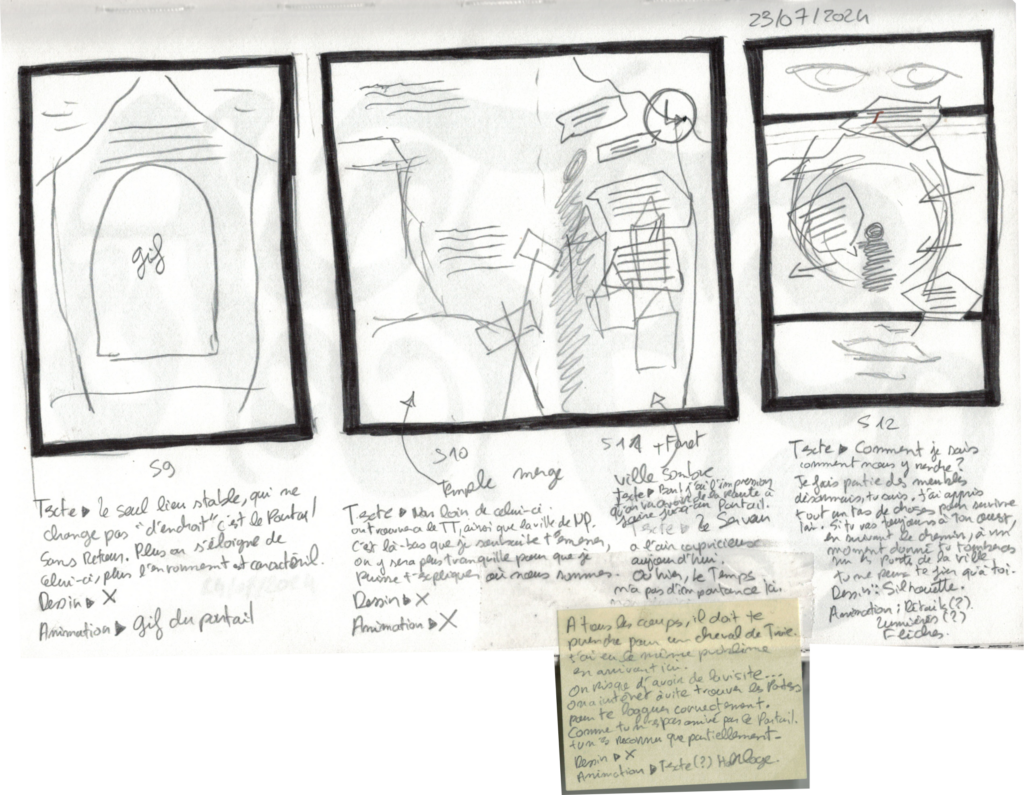 23/07/2024
gif
S9
Texte ▸ le seul lieu stable, qui ne
change pas "d'endroit" c'est le Portail
Sans Retour. Plus on s'éloigne de
celui-ci, plus l'environnement est
Dessin ▸ X
Animation ▸ gif du portail
S10
Temple merge
Texte ▸ Non loin de celui-ci.
on trouve le TT, ainsi que la ville de
C'est là-bas que je souhaite t'emmener,
on y sera plus tranquille pour que je
puisse t'expliquer où nous sommes.
Dessin ▸ X
Animation ▸ X
S11 + Foret
Ville Sombre
Texte ▸ Bon! j'ai l'impression
qu'on va avoir de la route à
faire jusqu'au Portail.
Texte ▸ le Servan
a l'air capricieux
aujourd'hui.
Où hier, le Temps
n'a pas d'importance là.
A tous les coups, il doit te
prendre pour un cheval de Troie.
j'ai eu le même problème
en arrivant ici.
On risque d'avoir de la visite...
on a intérêt à vite trouver les Portes
pour te logguer correctement.
Comme tu n'es pas arrivé par le Portail.
tu n'es reconnu que partiellement.
Dessin ▸ X
Animation ▸ Texte(?) Horloge.
S12
Texte ▸ Comment je sais
comment nous y rendre?
Je fais partie des meubles
désormais, tu sais. j'ai appris
tout un tas de choses pour survivre
ici. Si tu vas toujours à l'ouest,
en suivant le chemin, à un
moment donné tu tomberas
sur la porte de la ville
tu ne peux te fier qu'à toi.
Dessin: Silhouette.
Animation: Détails(?)
Lumières(?)
Flèches.